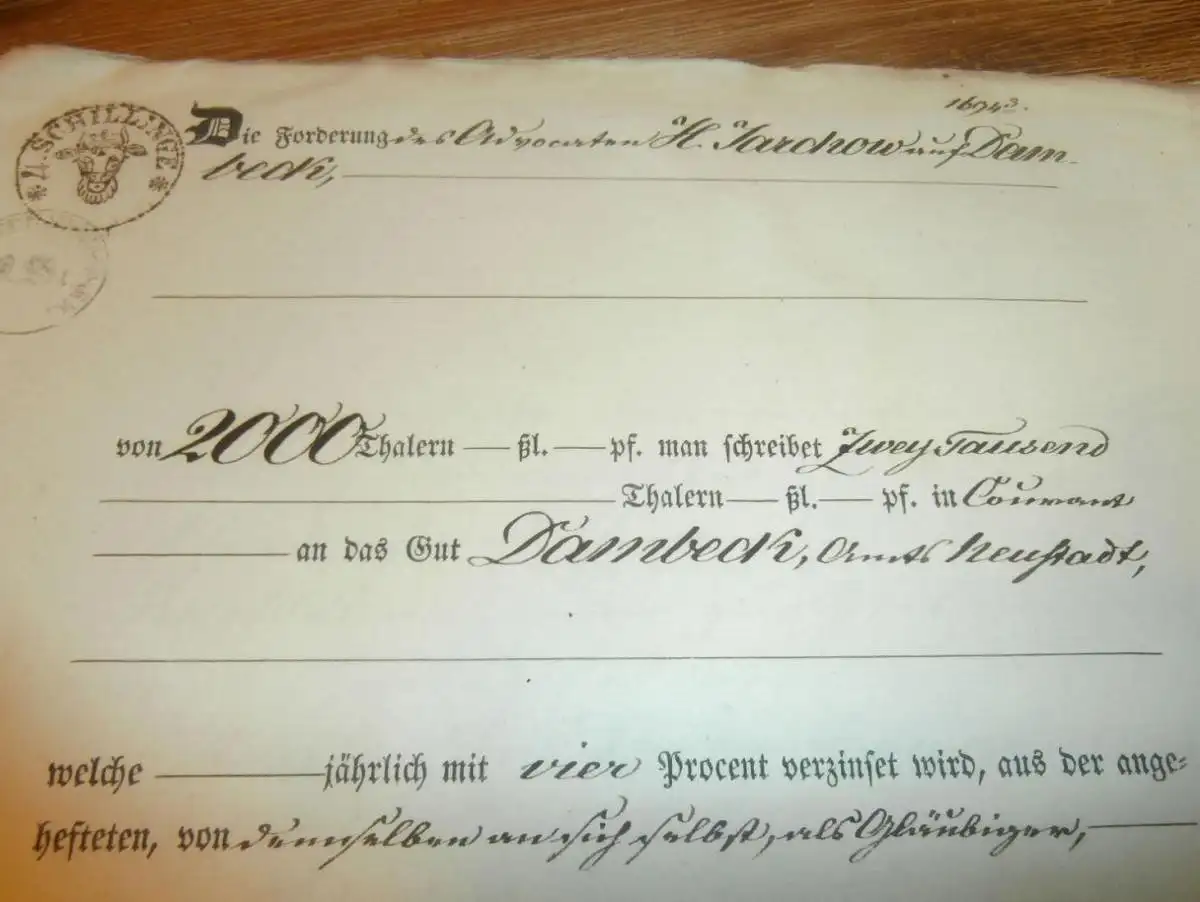 1694 3.
4. SCHILLINGE
Die Forderung des Advocaten H. Jarchow auf Dam-
beck,
von 2000 Thalern — ßl. — pf. man schreibet Zwey Tausend
Thalern — ßl. — pf. in Courant
an das Gut Dambeck, Amts Neustadt,
welche — jährlich mit vier Procent verzinset wird, aus der ange-
hefteten, von demselben an sich selbst, als Gläubiger, —